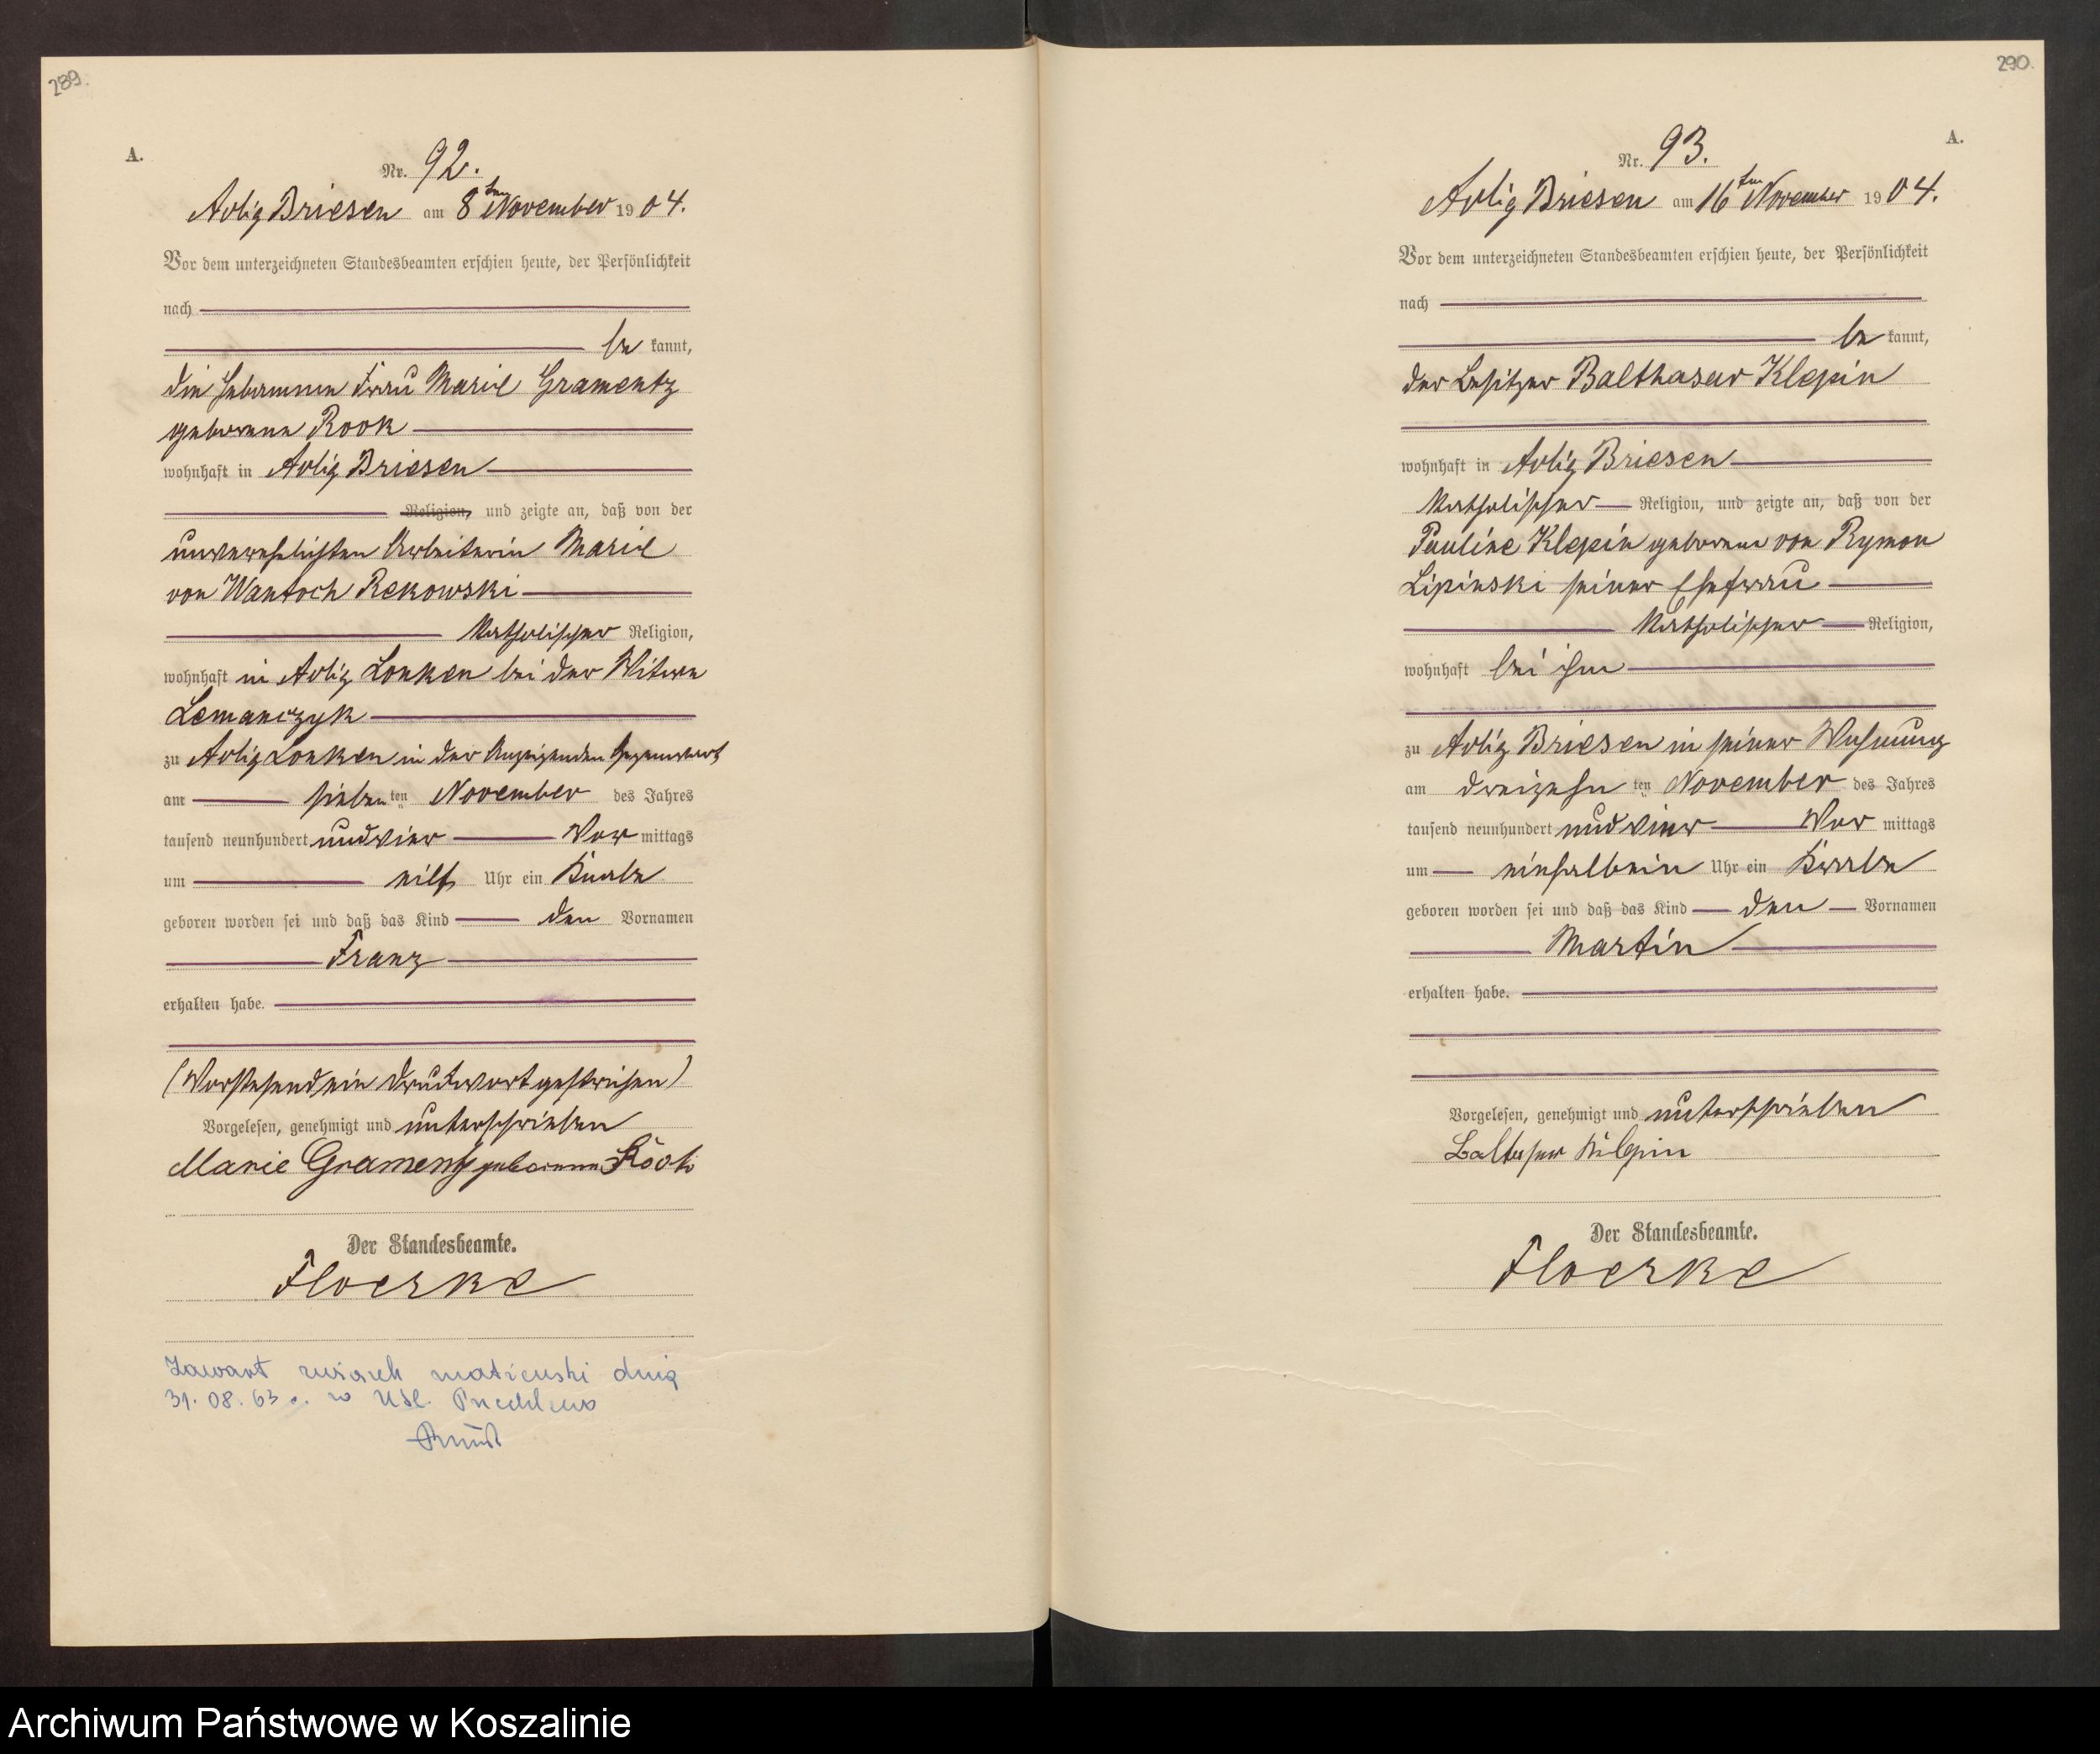 289.
A.
Nr. 92.
Adlig Briesen am 8ten November 1904.
Vor dem unterzeichneten Standesbeamten erschien heute, der Persönlichkeit
nach
be kannt,
die Hebamme Frau Marie Gramentz
geborene Rook
wohnhaft in Adlig Briesen
Religion, und zeigte an, daß von der
unverehelichten Arbeiterin Marie
von Wantoch Rekowski
katholischer Religion,
wohnhaft in Adlig Lonken bei der Witwe
Lemanczyk
zu Adlig Lonken in der Anzeigenden Gegenwart
am sieben ten November des Jahres
tausend neunhundert und vier Vor mittags
um eilf Uhr ein Knabe
geboren worden sei und daß das Kind den Vornamen
Franz
erhalten habe.
(Vorstehend ein Druckwort gestrichen)
Vorgelesen, genehmigt und unterschrieben
Marie Gramentz geborene Rook
Der Standesbeamte.
Floerke
Zawarł związek małżeński dnia
31.08.63 r. w USC
290.
A.
Nr. 93.
Adlig Briesen am 16ten November 1904.
Vor dem unterzeichneten Standesbeamten erschien heute, der Persönlichkeit
nach
be kannt,
der Besitzer Balthasar Klepin
wohnhaft in Adlig Briesen
katholischer Religion, und zeigte an, daß von der
Pauline Klepin geborene von Rymon
Lipinski seiner Ehefrau
katholischer Religion,
wohnhaft bei ihm
zu Adlig Briesen in seiner Wohnung
am dreizehn ten November des Jahres
tausend neunhundert und vier Vor mittags
um einhalb ein Uhr ein Knabe
geboren worden sei und daß das Kind den Vornamen
Martin
erhalten habe.
Vorgelesen, genehmigt und unterschrieben
Balthasar Klepin
Der Standesbeamte.
Floerke
Archiwum Państwowe w Koszalinie